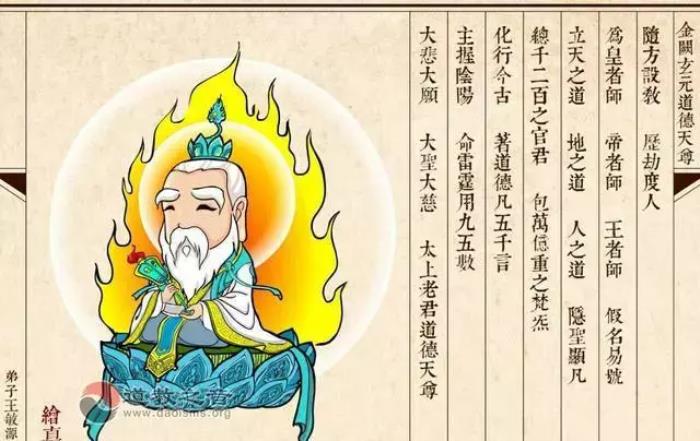 金闕玄元道德天尊
隨方設教 歷劫度人
為皇者師 帝者師 王者師 假名易號
立天之道 地之道 人之道 隱聖顯凡
總千二百之官君 包萬億重之梵炁
化行今古 著道德凡五千言
主握陰陽 命雷霆用九五數
大悲大願 大聖大慈 太上老君道德天尊
道教之音
www.daoisms.org
繪真
弟子王敏源